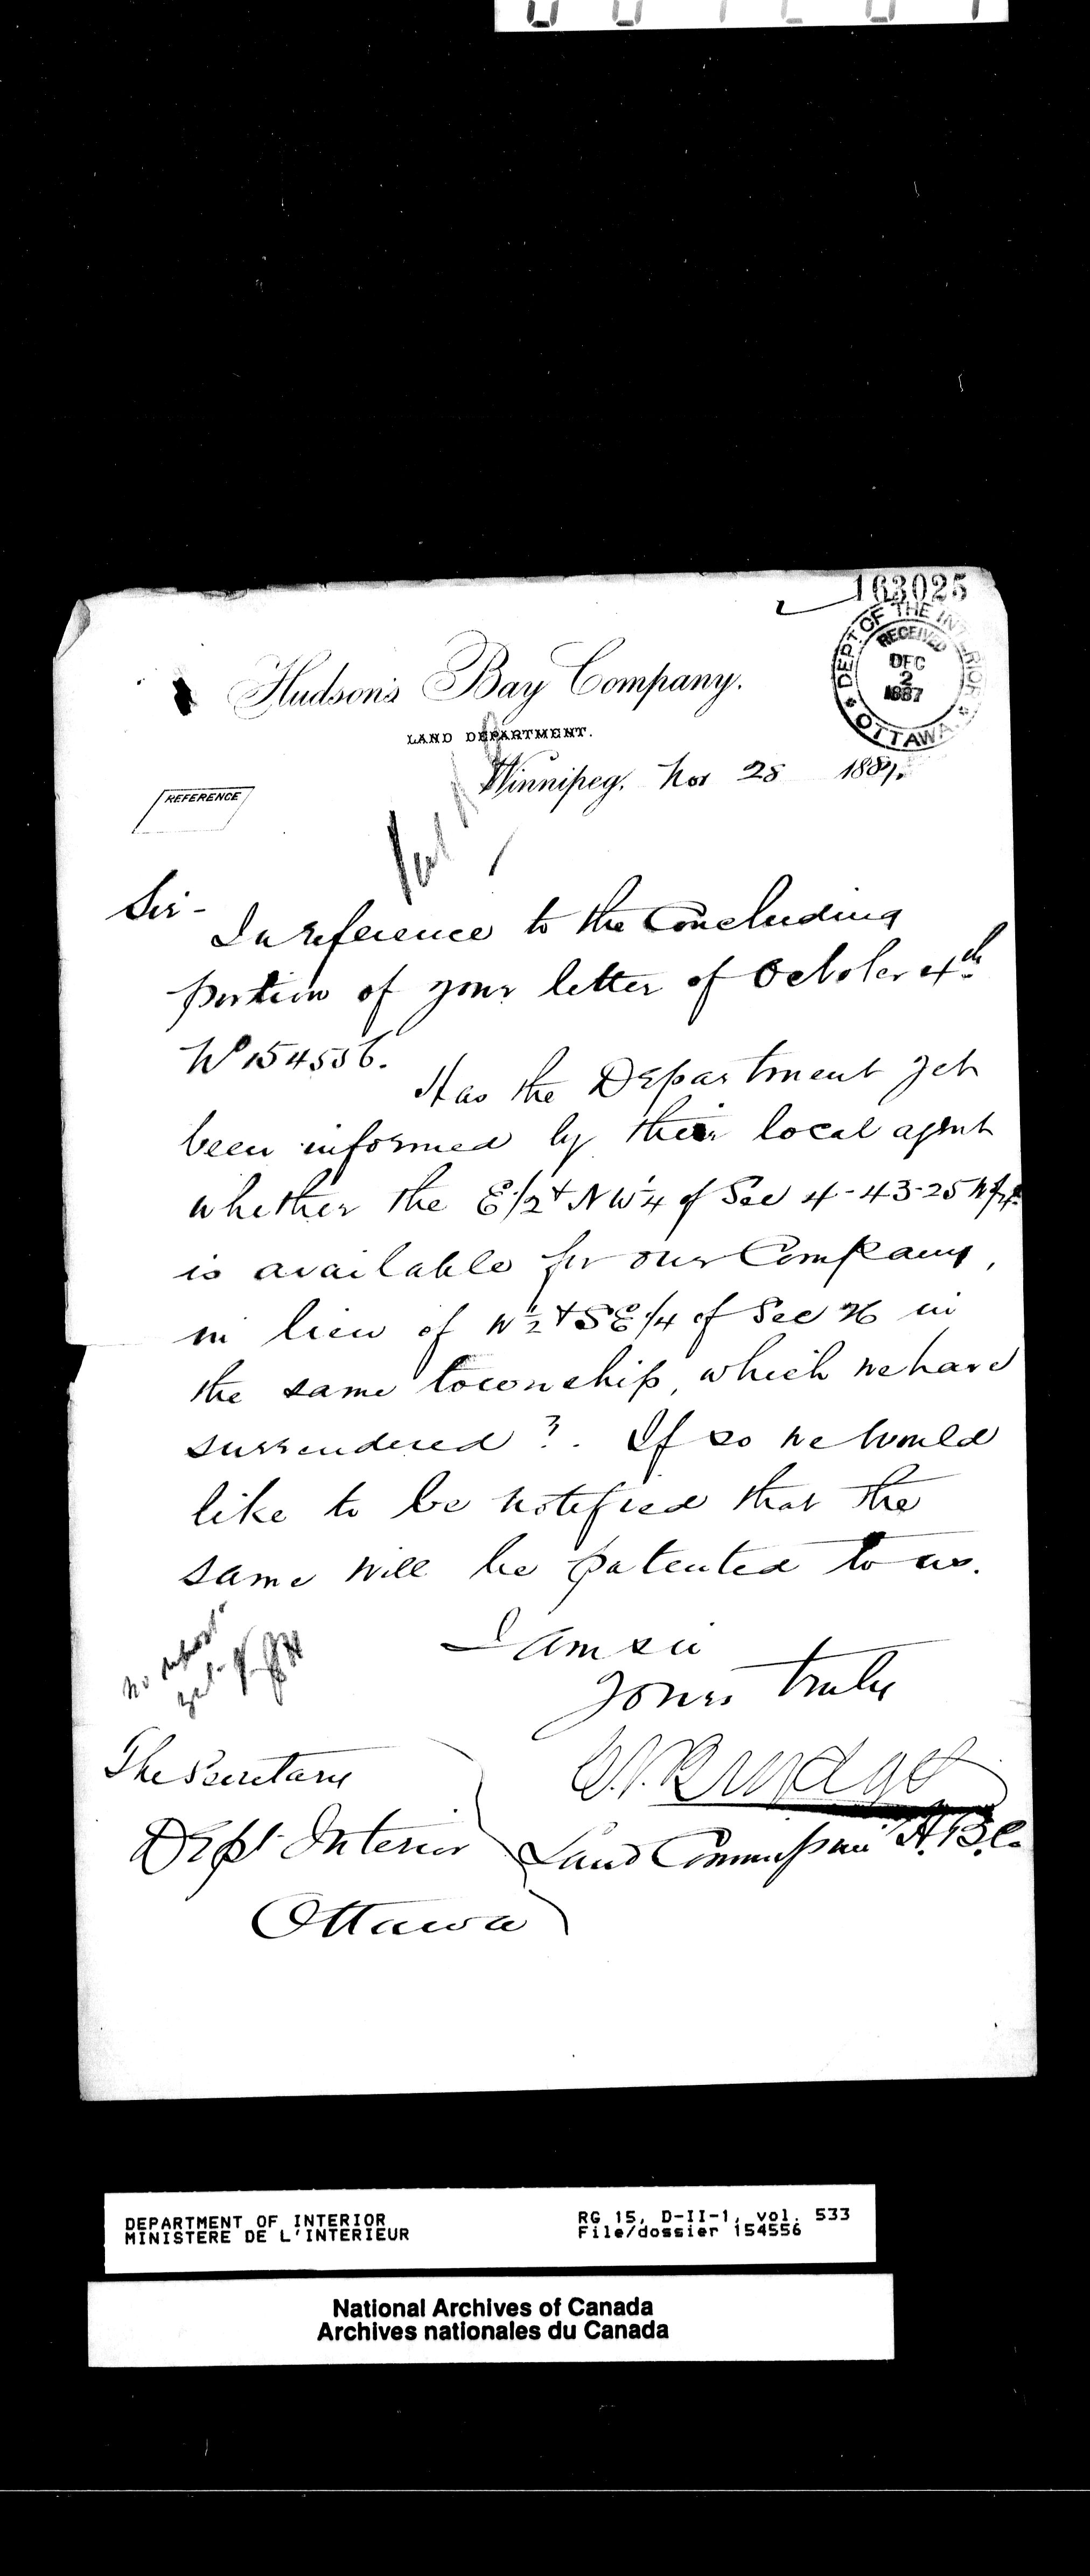 163025
DEPT OF THE INTERIOR
RECEIVED
DEC
2
1887
OTTAWA
Hudson's Bay Company.
LAND DEPARTMENT.
Winnipeg, Nov 28 1887.
REFERENCE
Sir-
In reference to the Concluding
portion of your letter of October 4th
No 154556.
Has the Department yet
been informed by their local agent
whether the E 1/2 & NW 1/4 of Sec 4-43-25
is available for our Company,
in lieu of N 1/2 & SE 1/4 of Sec 26 in
the same township, which we have
surrendered?. If so we would
like to be notified that the
same will be patented to us.
I am sir
Yours truly
no report
yet
The Secretary
Dept Interior
Ottawa
Land Commissioner H.B.Co
DEPARTMENT OF INTERIOR
MINISTERE DE L'INTERIEUR
RG 15, D-II-1, vol. 533
File/dossier 154556
National Archives of Canada
Archives nationales du Canada